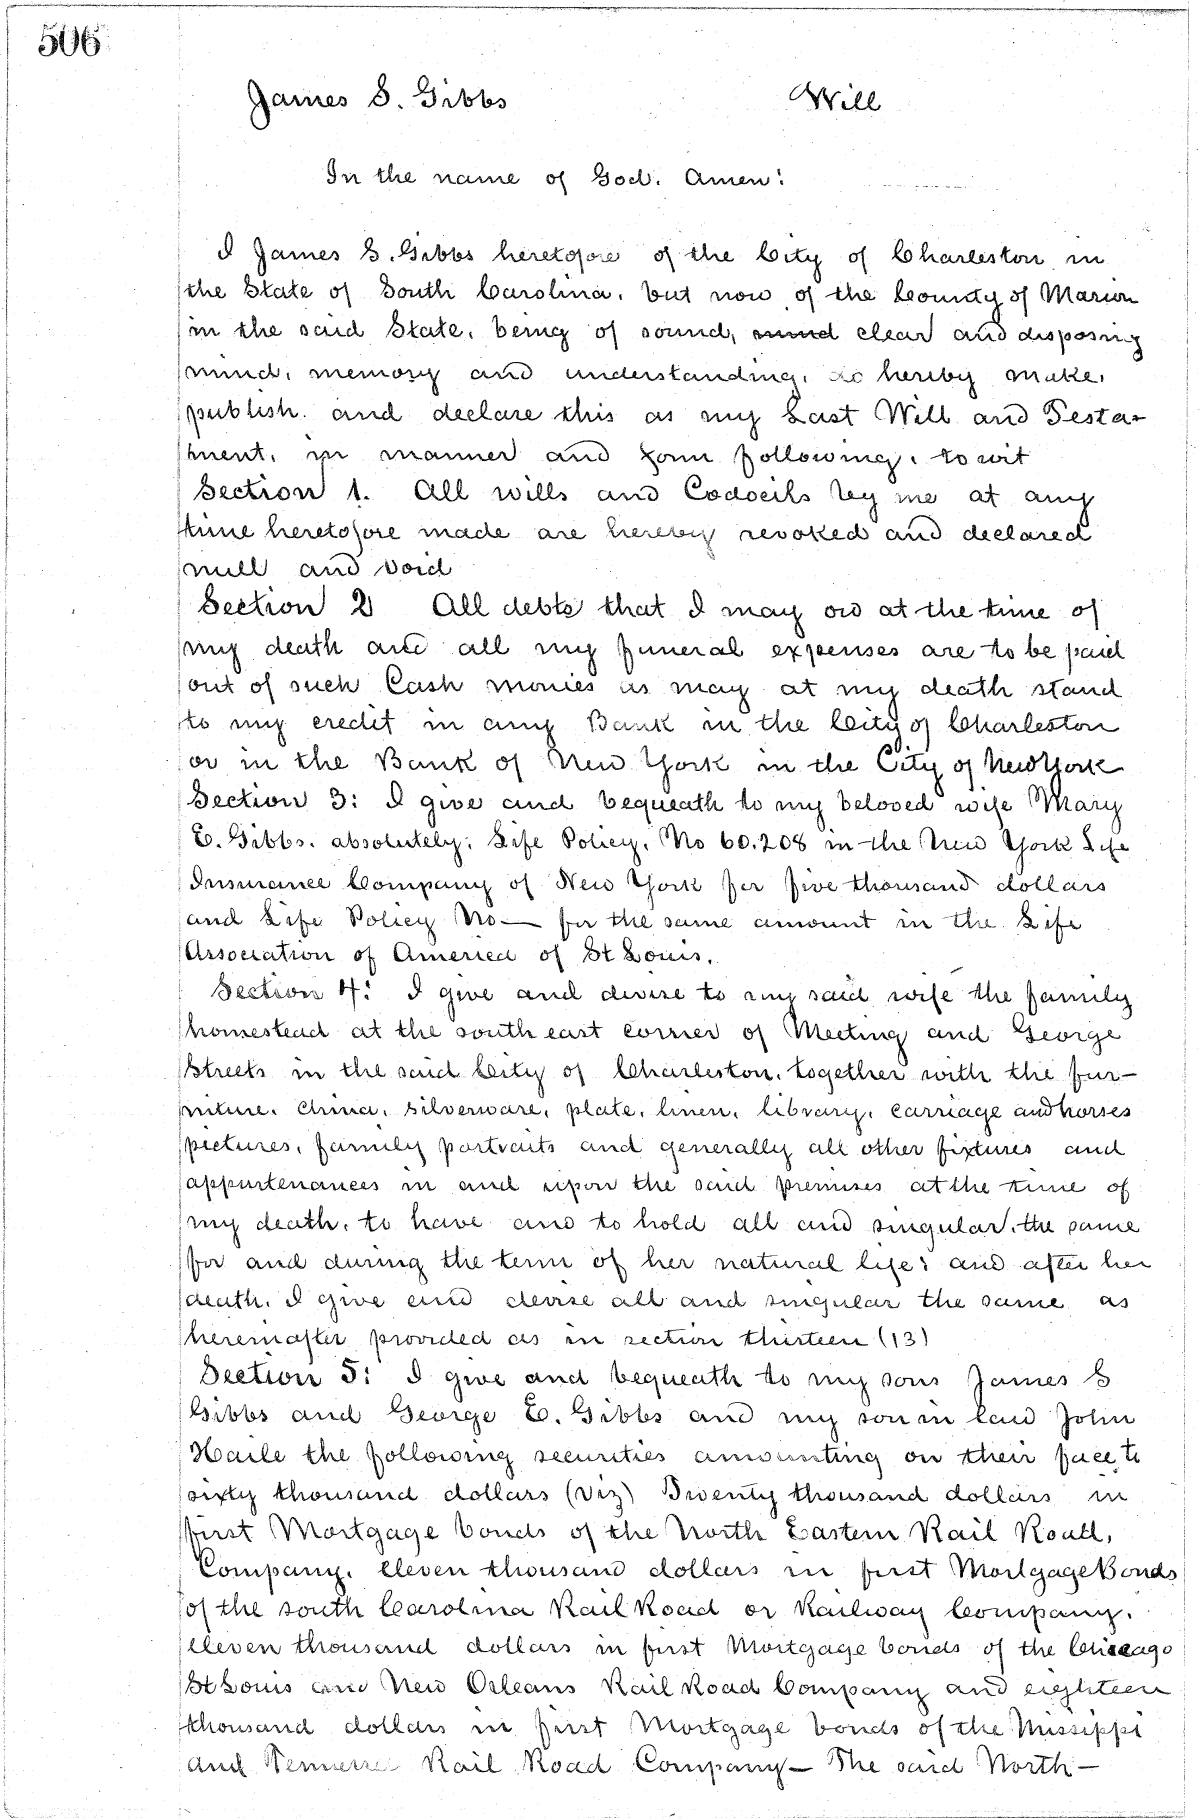 506
James S. Gibbs Will
In the name of God. Amen:
I James S. Gibbs heretofore of the City of Charleston in
the State of South Carolina, but now of the County of Marion
in the said State, being of sound, mind clear and disposing
mind, memory and understanding, do hereby make,
publish and declare this as my Last Will and Testa-
ment, in manner and form following, to wit
Section 1. All wills and Codocils by me at any
time heretofore made are hereby revoked and declared
null and void
Section 2 All debts that I may ow at the time of
my death and all my funeral expenses are to be paid
out of such Cash monies as may at my death stand
to my credit in any Bank in the City of Charleston
or in the Bank of New York in the City of New York
Section 3: I give and bequeath to my beloved wife Mary
E. Gibbs. absolutely: Life Policy, No 60.208 in the New York Life
Insurance Company of New York for five thousand dollars
and Life Policy No — for the same amount in the Life
Association of America of St Louis.
Section 4: I give and devise to my said wife the family
homestead at the south east corner of Meeting and George
Streets in the said City of Charleston, together with the fur-
niture, china, silverware, plate, linen, library, carriage and horses
pictures, family portraits and generally all other fixtures and
appurtenances in and upon the said premises at the time of
my death, to have and to hold all and singular, the same
for and during the term of her natural life: and after her
death, I give and devise all and singular the same as
hereinafter provided as in section thirteen (13)
Section 5: I give and bequeath to my sons James S
Gibbs and George E. Gibbs and my son in law John
Haile the following securities amounting on their face to
sixty thousand dollars (viz) Twenty thousand dollars in
first Mortgage bonds of the North Eastern Rail Road,
Company, eleven thousand dollars in first Mortgage Bonds
of the south Carolina Rail Road or Railway Company,
eleven thousand dollars in first Mortgage bonds of the Chicago
St Louis and New Orleans Rail Road Company and eighteen
thousand dollars in first Mortgage bonds of the Missippi
and Rail Road Company — The said North-